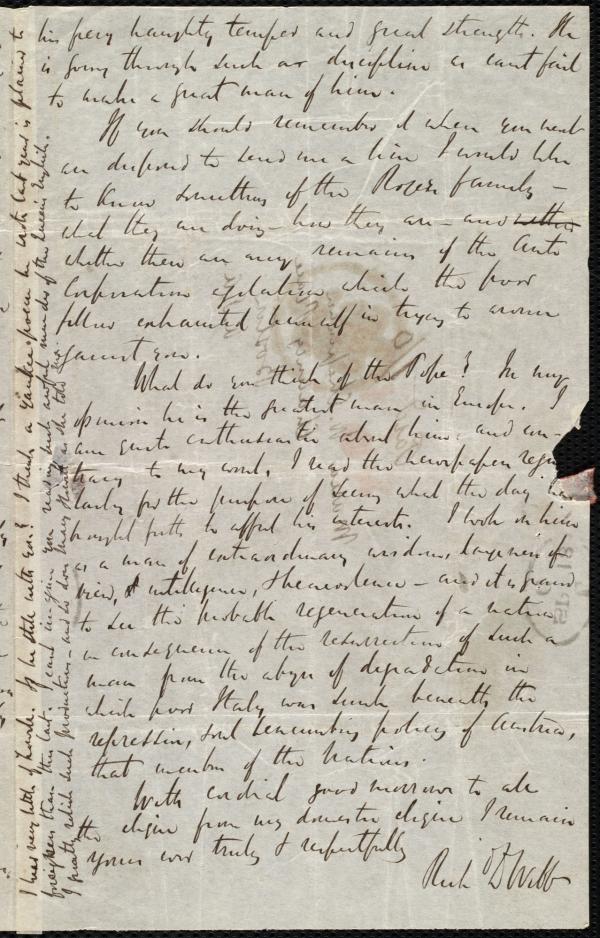 his fiery haughty temper and great strength. He
is going through such a discipline as can't fail
to make a great man of him.
If you should remember it when you next
are disposed to send me a line I would like
to know something of the Rogers family –
what they are doing – how they are – and
whether there are any remains of the Anti
Corporation agitation which the poor
fellow exhausted himself in trying to arouse
against you.
What do you think of the Pope? In my
opinion he is the greatest man in Europe. I
am quite enthusiastic about him, and con-
trary to my wont, I read the newspapers regu
larly for the purpose of seeing what the day has
brought forth to affect his interests. I look on him
as a man of extraordinary wisdom, largeness of
view, & intelligence, & benevolence – and it is grand
to see the probable regeneration of a nation
in consequence of the resurrection of such a
man from the abyss of degradation in
which poor Italy was sunk beneath the
repressing, soul benumbing policy of Austria,
that of the Nations.
With cordial good morrows to all
the eligio from my domestic eligio I remain
yours ever truly & respectfully
Rich D Webb
I hear very little of Is he still with you? I think a Yankee poem he wrote last year is plainer to
foreigners than this last. I can't imagine you making such awful murder of the Queen's English.
I greatly relish such productions – and so does Mary